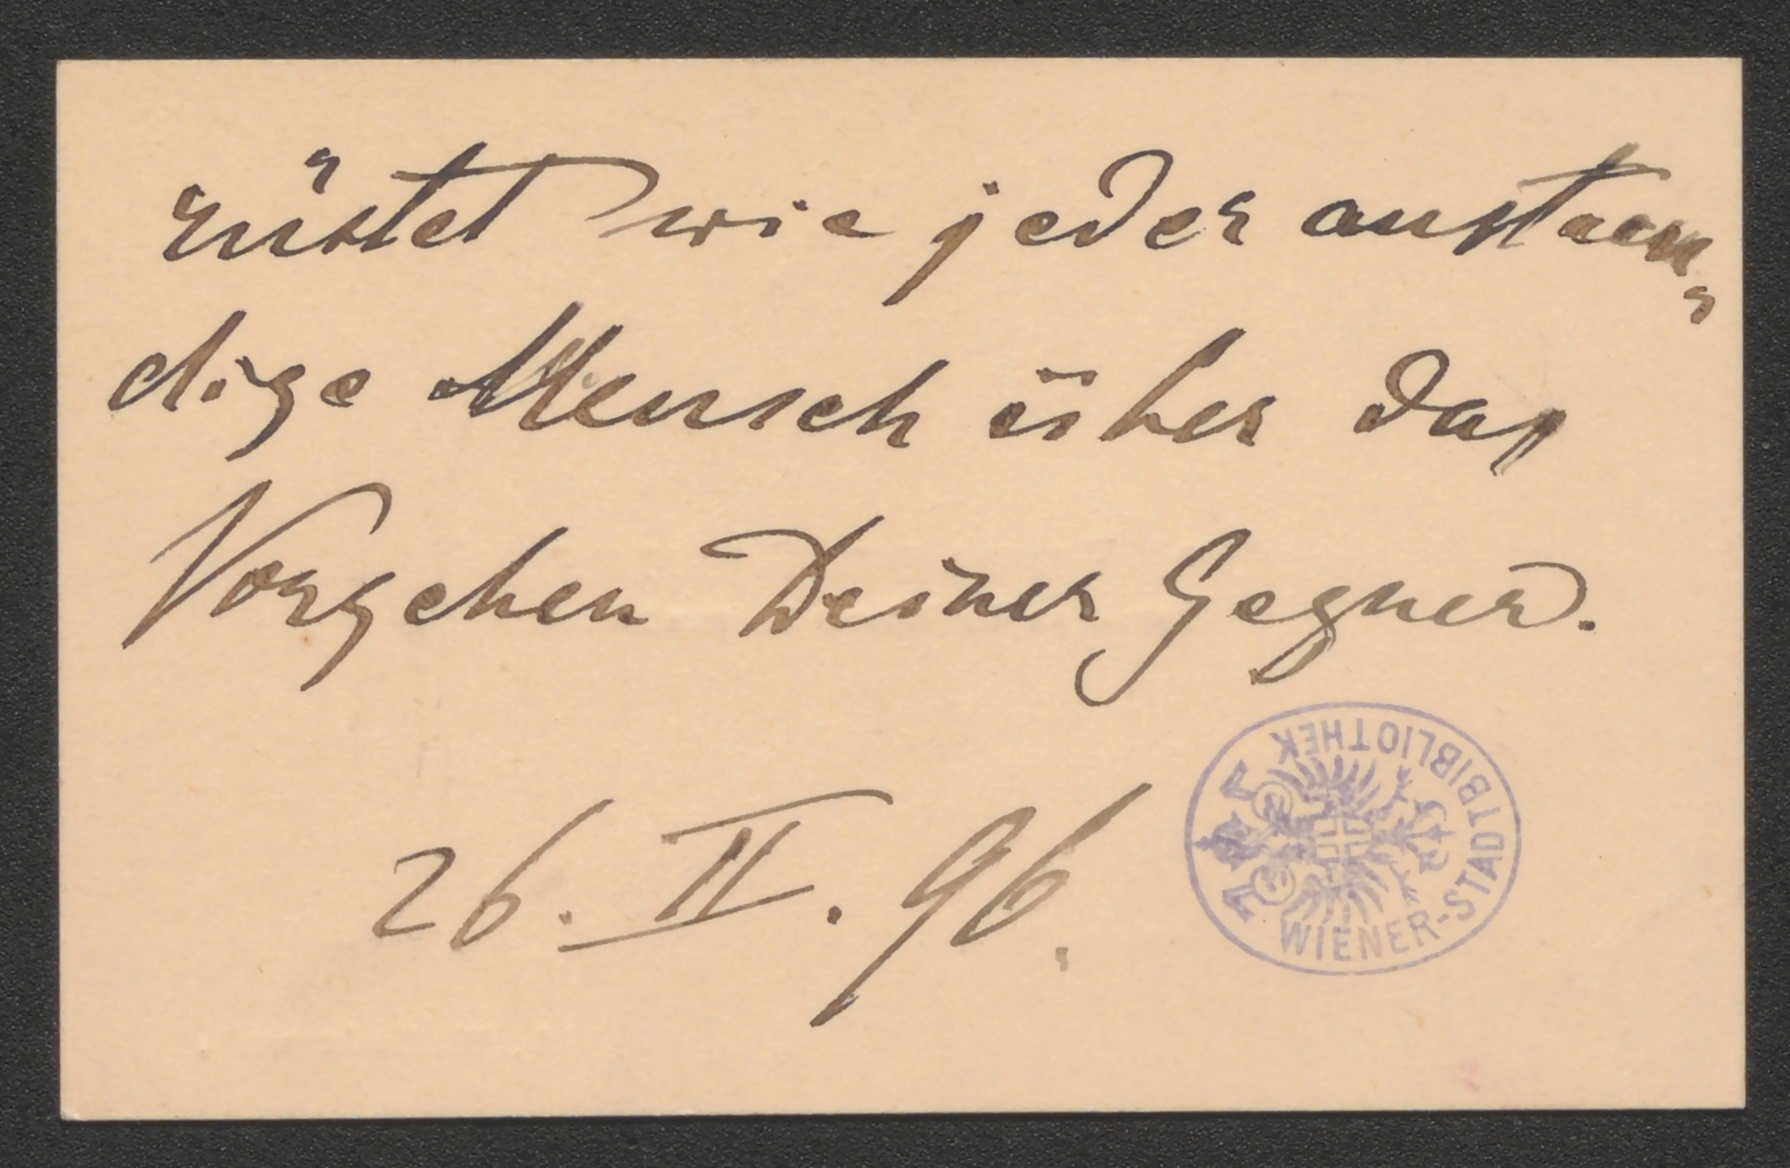 rüstet wie jeder anstaen-
dige Mensch über das
Vorgehen Deiner Gegner.
26. II. 96.
WIENER-STADTBIBLIOTHEK